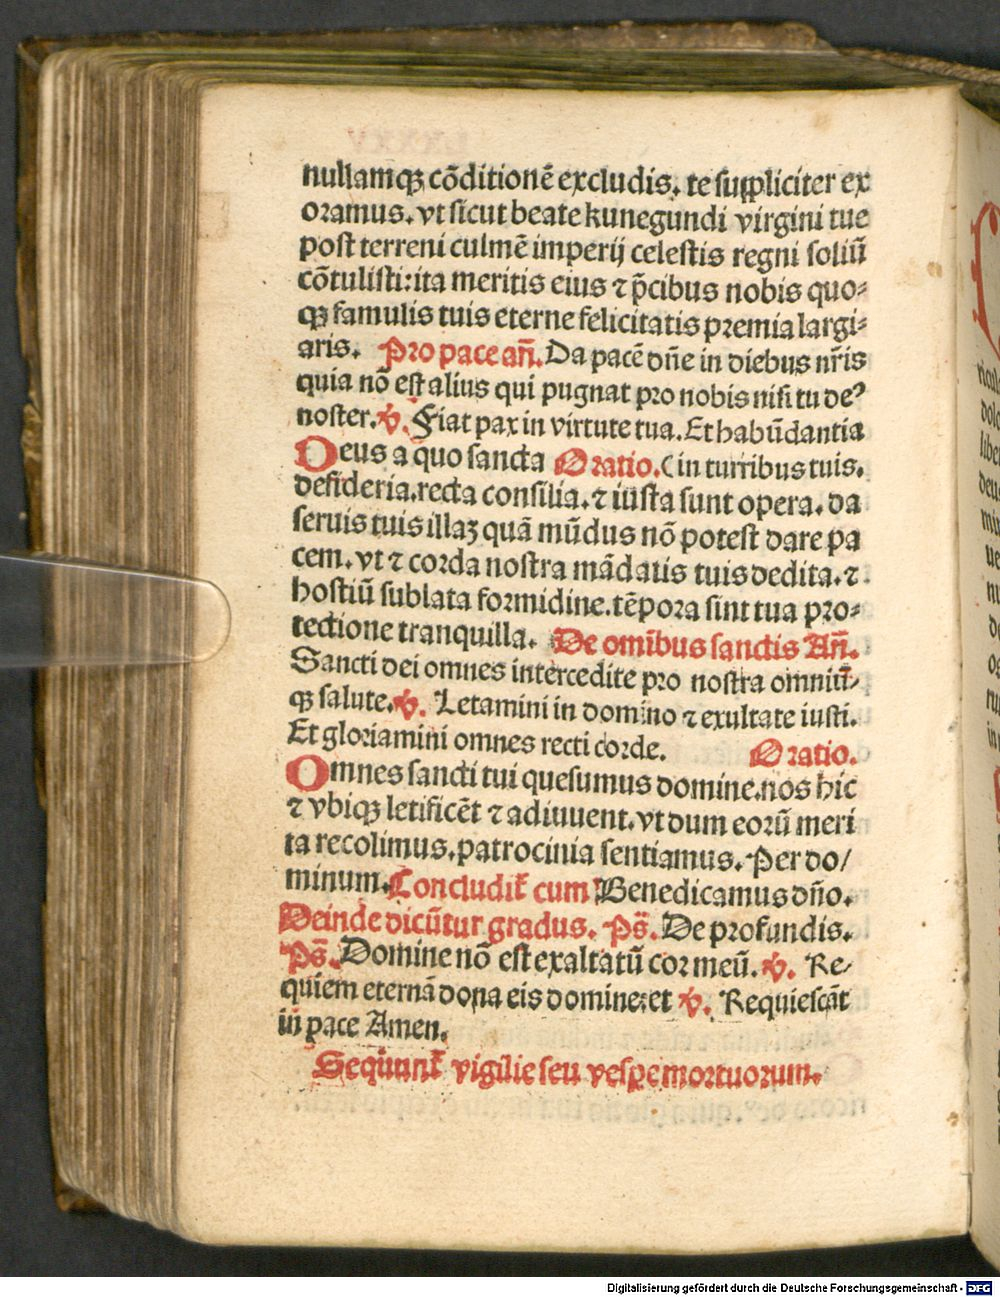 nullamqꝫ cōditionē excludis. te suppliciter ex
oramus. vt sicut beate kunegundi virgini tue
post terreni culmē imperij celestis regni soliū
cōtulisti: ita meritis eius ⁊ p̄cibus nobis quo⸗
qꝫ famulis tuis eterne felicitatis premia largi⸗
aris. Pro pace an̄. Da pacē dn̄e in diebus nr̄is
quia nō est alius qui pugnat pro nobis nisi tu deꝰ
noster. ℣. Fiat pax in virtute tua. Et habūdantia
Deus a quo sancta Oratio. ( in turribus tuis.
desideria. recta consilia. ⁊ iusta sunt opera. da
seruis tuis illaꝫ quā mūdus nō potest dare pa
cem. vt ⁊ corda nostra mādatis tuis dedita. ⁊
hostiū sublata formidine. tēpora sint tua pro⸗
tectione tranquilla. De omībus sanctis An̄.
Sancti dei omnes intercedite pro nostra omniū⸗
qꝫ salute. ℣. Letamini in domino ⁊ exultate iusti.
Et gloriamini omnes recti corde. Oratio.
Omnes sancti tui quesumus domine. nos hic
⁊ vbiqꝫ letificēt ⁊ adiuuent. vt dum eorū meri
ta recolimus. patrocinia sentiamus. Per do/
minum. Concludit᷑ cum Benedicamus dn̄o.
Deinde dicūtur gradus. Ps̄. De profundis.
Ps̄. Domine nō est exaltatū cor meū. ℣. Re⸗
quiem eternā dona eis domine: et ℣. Requiescāt
in pace Amen.
Sequūnt᷑ vigilie seu vespe mortuorum.
Digitalisierung gefördert durch die Deutsche Forschungsgemeinschaft - DFG